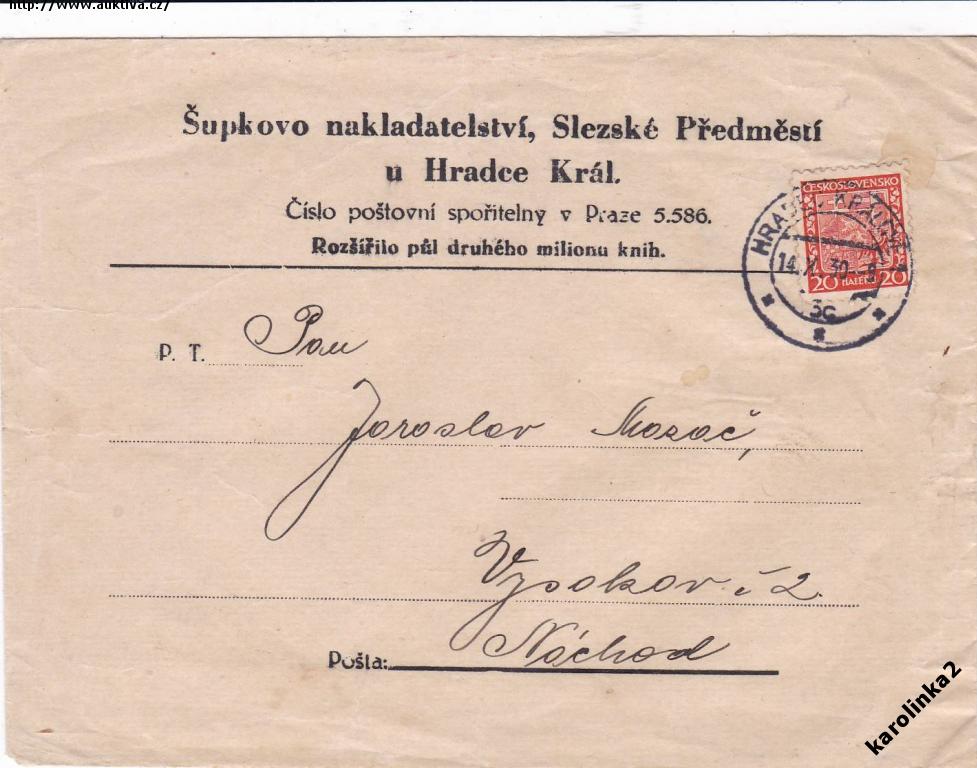 http://www.auktiva.cz/
Šupkovo nakladatelství, Slezské Předměstí
u Hradce Král.
Číslo poštovní spořitelny v Praze 5.586.
Rozšířilo půl druhého milionu knih.
ČESKOSLOVENSKO
20 HALÉŘŮ 20
HRADEC KRÁLOVÉ
14. X. 30
3c
P. T. Pan
Jaroslav Mazač,
Vysokov č 2.
Pošta: Náchod
karolinka2